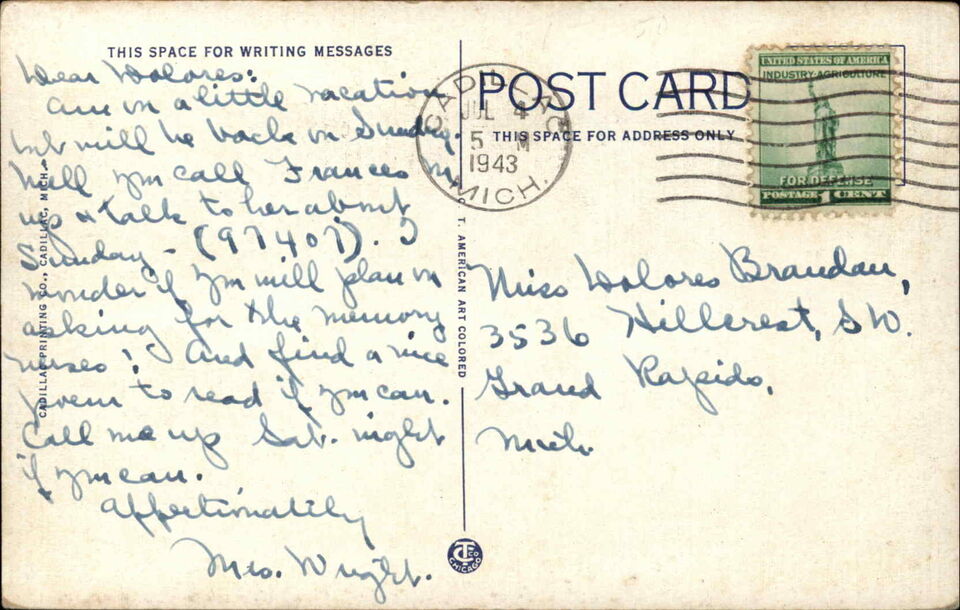 THIS SPACE FOR WRITING MESSAGES
Dear Dolores:
Am on a little vacation
but will be back on Sunday.
Will you call Frances M
up & talk to her about
Sunday - (97407). I
wonder if you will plan on
asking for the memory
verses! And find a nice
poem to read if you can.
Call me up Sat. night
if you can.
Affectionatily
Mrs. Wright.
CADILLAC PRINTING CO., CADILLAC, MICH.
C. T. AMERICAN ART COLORED
CT CO
CHICAGO
POST CARD
THIS SPACE FOR ADDRESS ONLY
CADILLAC
JUL 4
5 M
1943
MICH.
UNITED STATES OF AMERICA
INDUSTRY AGRICULTURE
FOR DEFENSE
POSTAGE 1 CENT
Miss Dolores Brandau,
3536 Hillcrest, S W.
Grand Rapids,
Mich